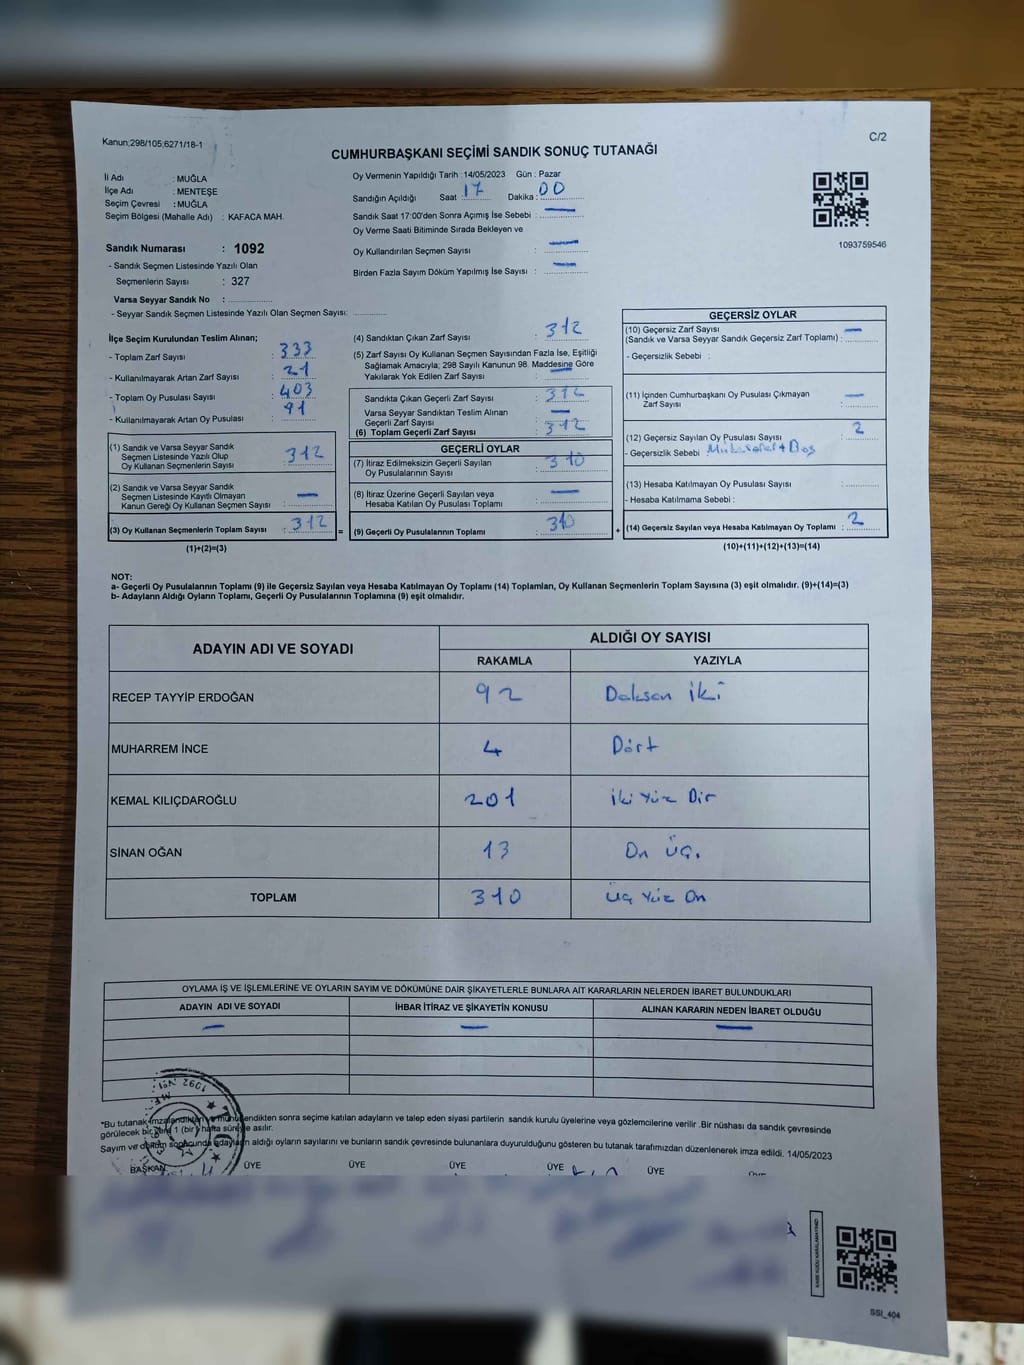 Kanun;298/105;6271/18-1
C/2
CUMHURBAŞKANI SEÇİMİ SANDIK SONUÇ TUTANAĞI
İl Adı : MUĞLA
İlçe Adı : MENTEŞE
Seçim Çevresi : MUĞLA
Seçim Bölgesi (Mahalle Adı) : KAFACA MAH.
Oy Vermenin Yapıldığı Tarih :14/05/2023 Gün : Pazar
Sandığın Açıldığı Saat 17 Dakika : 00
Sandık Saat 17:00'den Sonra Açımış İse Sebebi : —
Oy Verme Saati Bitiminde Sırada Bekleyen ve
Oy Kullandırılan Seçmen Sayısı : —
Birden Fazla Sayım Döküm Yapılmış İse Sayısı : —
1093759546
Sandık Numarası : 1092
- Sandık Seçmen Listesinde Yazılı Olan
Seçmenlerin Sayısı : 327
Varsa Seyyar Sandık No :
- Seyyar Sandık Seçmen Listesinde Yazılı Olan Seçmen Sayısı:
İlçe Seçim Kurulundan Teslim Alınan;
- Toplam Zarf Sayısı : 333
- Kullanılmayarak Artan Zarf Sayısı : 21
- Toplam Oy Pusulası Sayısı : 403
- Kullanılmayarak Artan Oy Pusulası : 91
(1) Sandık ve Varsa Seyyar Sandık
Seçmen Listesinde Yazılı Olup
Oy Kullanan Seçmenlerin Sayısı : 312
(2) Sandık ve Varsa Seyyar Sandık
Seçmen Listesinde Kayıtlı Olmayan
Kanun Gereği Oy Kullanan Seçmen Sayısı : —
(3) Oy Kullanan Seçmenlerin Toplam Sayısı : 312 =
(1)+(2)=(3)
(4) Sandıktan Çıkan Zarf Sayısı : 312
(5) Zarf Sayısı Oy Kullanan Seçmen Sayısından Fazla İse, Eşitliği
Sağlamak Amacıyla; 298 Sayılı Kanunun 98. Maddesine Göre
Yakılarak Yok Edilen Zarf Sayısı : —
Sandıkta Çıkan Geçerli Zarf Sayısı : 312
Varsa Seyyar Sandıktan Teslim Alınan
Geçerli Zarf Sayısı : —
(6) Toplam Geçerli Zarf Sayısı : 312
GEÇERLİ OYLAR
(7) İtiraz Edilmeksizin Geçerli Sayılan
Oy Pusulalarının Sayısı : 310
(8) İtiraz Üzerine Geçerli Sayılan veya
Hesaba Katılan Oy Pusulası Toplamı : —
(9) Geçerli Oy Pusulalarının Toplamı : 310 +
GEÇERSİZ OYLAR
(10) Geçersiz Zarf Sayısı
(Sandık ve Varsa Seyyar Sandık Geçersiz Zarf Toplamı) : —
- Geçersizlik Sebebi :
(11) İçinden Cumhurbaşkanı Oy Pusulası Çıkmayan
Zarf Sayısı : —
(12) Geçersiz Sayılan Oy Pusulası Sayısı : 2
- Geçersizlik Sebebi : + Boş
(13) Hesaba Katılmayan Oy Pusulası Sayısı :
- Hesaba Katılmama Sebebi :
(14) Geçersiz Sayılan veya Hesaba Katılmayan Oy Toplamı : 2
(10)+(11)+(12)+(13)=(14)
NOT:
a- Geçerli Oy Pusulalarının Toplamı (9) ile Geçersiz Sayılan veya Hesaba Katılmayan Oy Toplamı (14) Toplamları, Oy Kullanan Seçmenlerin Toplam Sayısına (3) eşit olmalıdır. (9)+(14)=(3)
b- Adayların Aldığı Oyların Toplamı, Geçerli Oy Pusulalarının Toplamına (9) eşit olmalıdır.
ADAYIN ADI VE SOYADI ALDIĞI OY SAYISI
RAKAMLA YAZIYLA
RECEP TAYYİP ERDOĞAN 92 Doksan İki
MUHARREM İNCE 4 Dört
KEMAL KILIÇDAROĞLU 201 İki Yüz Bir
SİNAN OĞAN 13 On Üç.
TOPLAM 310 Üç Yüz On
OYLAMA İŞ VE İŞLEMLERİNE VE OYLARIN SAYIM VE DÖKÜMÜNE DAİR ŞİKAYETLERLE BUNLARA AİT KARARLARIN NELERDEN İBARET BULUNDUKLARI
ADAYIN ADI VE SOYADI İHBAR İTİRAZ VE ŞİKAYETİN KONUSU ALINAN KARARIN NEDEN İBARET OLDUĞU
— — —
*Bu tutanak imzalandıktan ve mühürlendikten sonra seçime katılan adayların ve talep eden siyasi partilerin sandık kurulu üyelerine veya gözlemcilerine verilir .Bir nüshası da sandık çevresinde
görülecek bir yere 1 (bir) hafta süreyle asılır.
Sayım ve döküm sonucunda adayların aldığı oyların sayılarını ve bunların sandık çevresinde bulunanlara duyurulduğunu gösteren bu tutanak tarafımızdan düzenlenerek imza edildi. 14/05/2023
BAŞKAN ÜYE ÜYE ÜYE ÜYE ÜYE
SSI_404